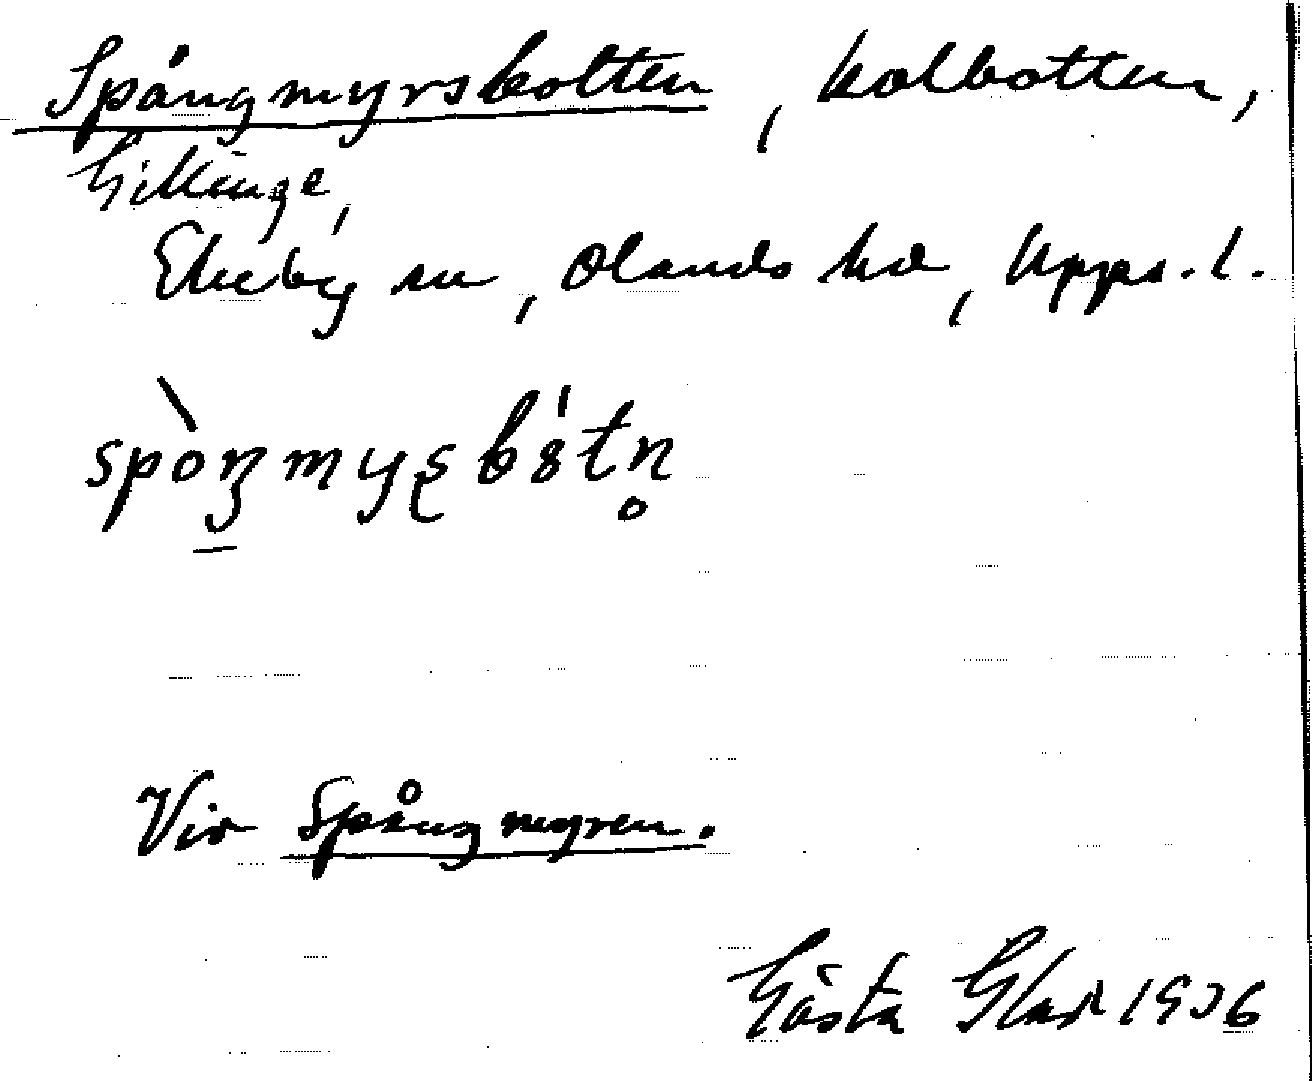 Spångmyrsbotten, kolbotten,
Gillinge,
Ekeby sn, Olands hd, Upps. l.
Vid Spångmyren.
Gösta 1936